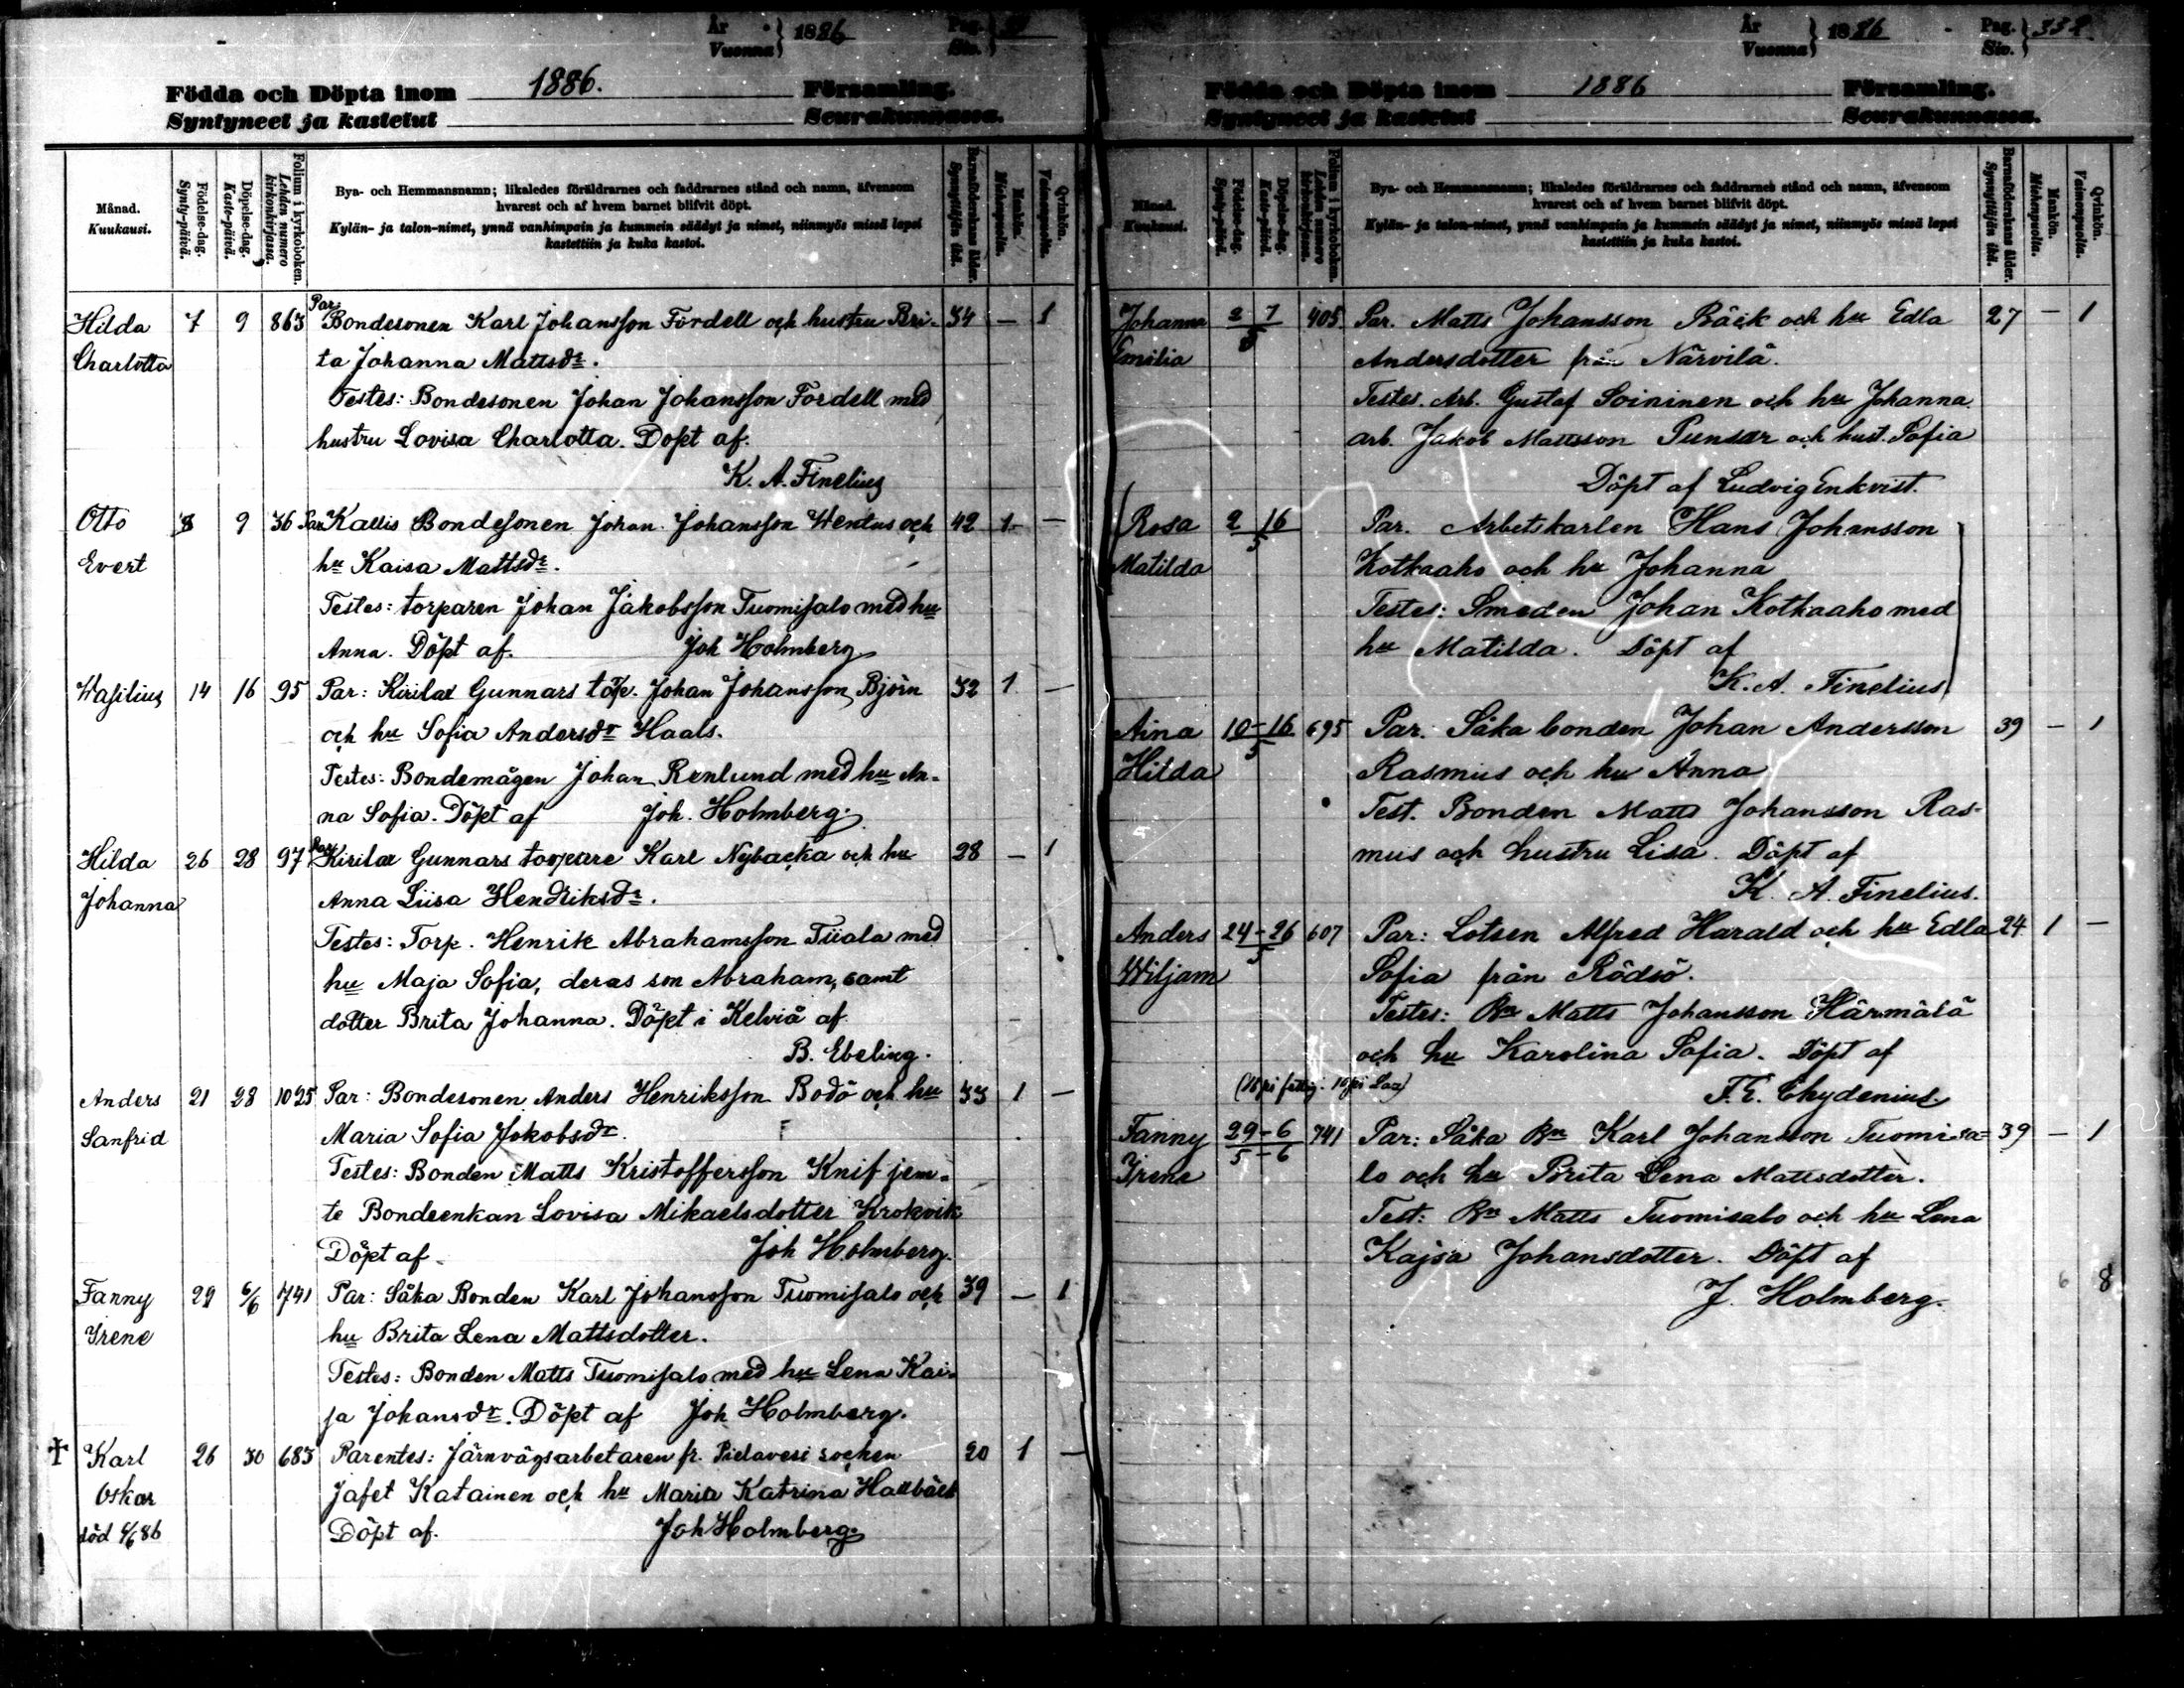 År
Vuonna } 1886
Pag.
Siv. }
Födda och Döpta inom 1886. Församling.
Syntyneet ja kastetut Seurakunnassa.
Månad.
Kuukausi.
Födelse-dag.
Synty-päivä.
Döpelse-dag.
Kaste-päivä.
Folium i kyrkoboken.
Lehden numero
kirkonkirjassa.
Bya- och Hemmansnamn; likaledes föräldrarnes och faddrarnes stånd och namn, äfvensom
hvarest och af hvem barnet blifvit döpt.
Kylän- ja talon-nimet, ynnä vanhimpain ja kummein säädyt ja nimet, niinmyös missä lapsi
kastettiin ja kuka kastoi.
Barnaföderskans ålder.
Synnyttäjän ikä.
Mankön.
Miehenpuolia.
Qvinkön.
Vaimonpuolia.
Hilda 7 9 863 Par: Bondesonen Karl Johansson Fordell och hustru Bri- 34 — 1
Charlotta ta Johanna Mattsdr.
Testes: Bondesonen Johan Johansson Fordell med
hustru Lovisa Charlotta. Döpt af.
K. A. Finelius
Otto 8 9 36 Par Kallis Bondesonen Johan Johansson Wentus och 42 1 —
Evert hu Kaisa Mattsdr.
Testes: torparen Johan Jakobsson Tuomisalo med hu
Anna. Döpt af. Joh Holmberg
Wasilius 14 16 95 Par: Kirilax Gunnars torp. Johan Johansson Björn 32 1 —
och hu Sofia Andersdr Haals.
Testes: Bondemågen Johan Renlund med hu An-
na Sofia. Döpt af Joh. Holmberg.
Hilda 26 28 97 Par Kirilax Gunnars torpare Karl Nybacka och hu 28 — 1
Johanna Anna Liisa Hendriksdr.
Testes: Torp. Henrik Abrahamsson Tiiala med
hu Maja Sofia, deras son Abraham, samt
dotter Brita Johanna. Döpt i Kelviå af
B. Ebeling.
Anders 21 28 1025 Par: Bondesonen Anders Henriksson Bodö och hu 33 1 —
Sanfrid Maria Sofia Jakobsdr.
Testes: Bonden Matts Kristoffersson Knif jem-
te Bondeenkan Lovisa Mikaelsdotter Krokvik
Döpt af. Joh Holmberg.
Fanny 29 6/6 741 Par: Såka Bonden Karl Johansson Tuomisalo och 39 — 1
Irene hu Brita Lena Mattsdotter.
Testes: Bonden Matts Tuomisalo med hu Lena Kai-
sa Johansdr. Döpt af Joh Holmberg.
† Karl 26 30 683 Parentes: Järnvägsarbetaren fr. Pielavesi socken 20 1 —
Oskar Jafet Katainen och hu Maria Katrina Hallbäck
död 6/6 86 Döpt af. Joh Holmberg.
År
Vuonna } 1886
Pag.
Siv. } 338
Födda och Döpta inom 1886 Församling.
Syntyneet ja kastetut Seurakunnassa.
Månad.
Kuukausi.
Födelse-dag.
Synty-päivä.
Döpelse-dag.
Kaste-päivä.
Folium i kyrkoboken.
Lehden numero
kirkonkirjassa.
Bya- och Hemmansnamn; likaledes föräldrarnes och faddrarnes stånd och namn, äfvensom
hvarest och af hvem barnet blifvit döpt.
Kylän- ja talon-nimet, ynnä vanhimpain ja kummein säädyt ja nimet, niinmyös missä lapsi
kastettiin ja kuka kastoi.
Barnaföderskans ålder.
Synnyttäjän ikä.
Mankön.
Miehenpuolia.
Qvinkön.
Vaimonpuolia.
Johanna 2 7 5 405 Par. Matts Johansson Bäck och hu Edla 27 — 1
Emilia Andersdotter från Närvilä.
Testes. Arb. Gustaf Soininen och hu Johanna.
arb. Jakob Mattsson Punsar och hust. Sofia
Döpt af Ludvig Enkvist.
Rosa 2 16 5 Par. Arbetskarlen Hans Johansson
Matilda Kotkaaho och hu Johanna
Testes: Smeden Johan Kotkaaho med
hu Matilda. Döpt af
K. A. Finelius
Aina 10-16 5 695 Par. Såka bonden Johan Andersson 39 — 1
Hilda Rasmus och hu Anna
Test. Bonden Matts Johansson Ras-
mus och hustru Lisa. Döpt af
K. A. Finelius.
Anders 24-26 5 607 Par: Lotsen Alfred Harald och hu Edla 24 1 —
Wiljam Sofia från Rödsö.
Testes: Bn Matts Johansson Härmälä
och hu Karolina Sofia. Döpt af
F. E. Chydenius.
Fanny 29-6 5-6 741 Par: Såka Bn Karl Johansson Tuomisa- 39 — 1
Irene lo och hu Brita Lena Mattsdotter.
Test: Bn Matts Tuomisalo och hu Lena
Kajsa Johansdotter. Döpt af
J. Holmberg. 6 8